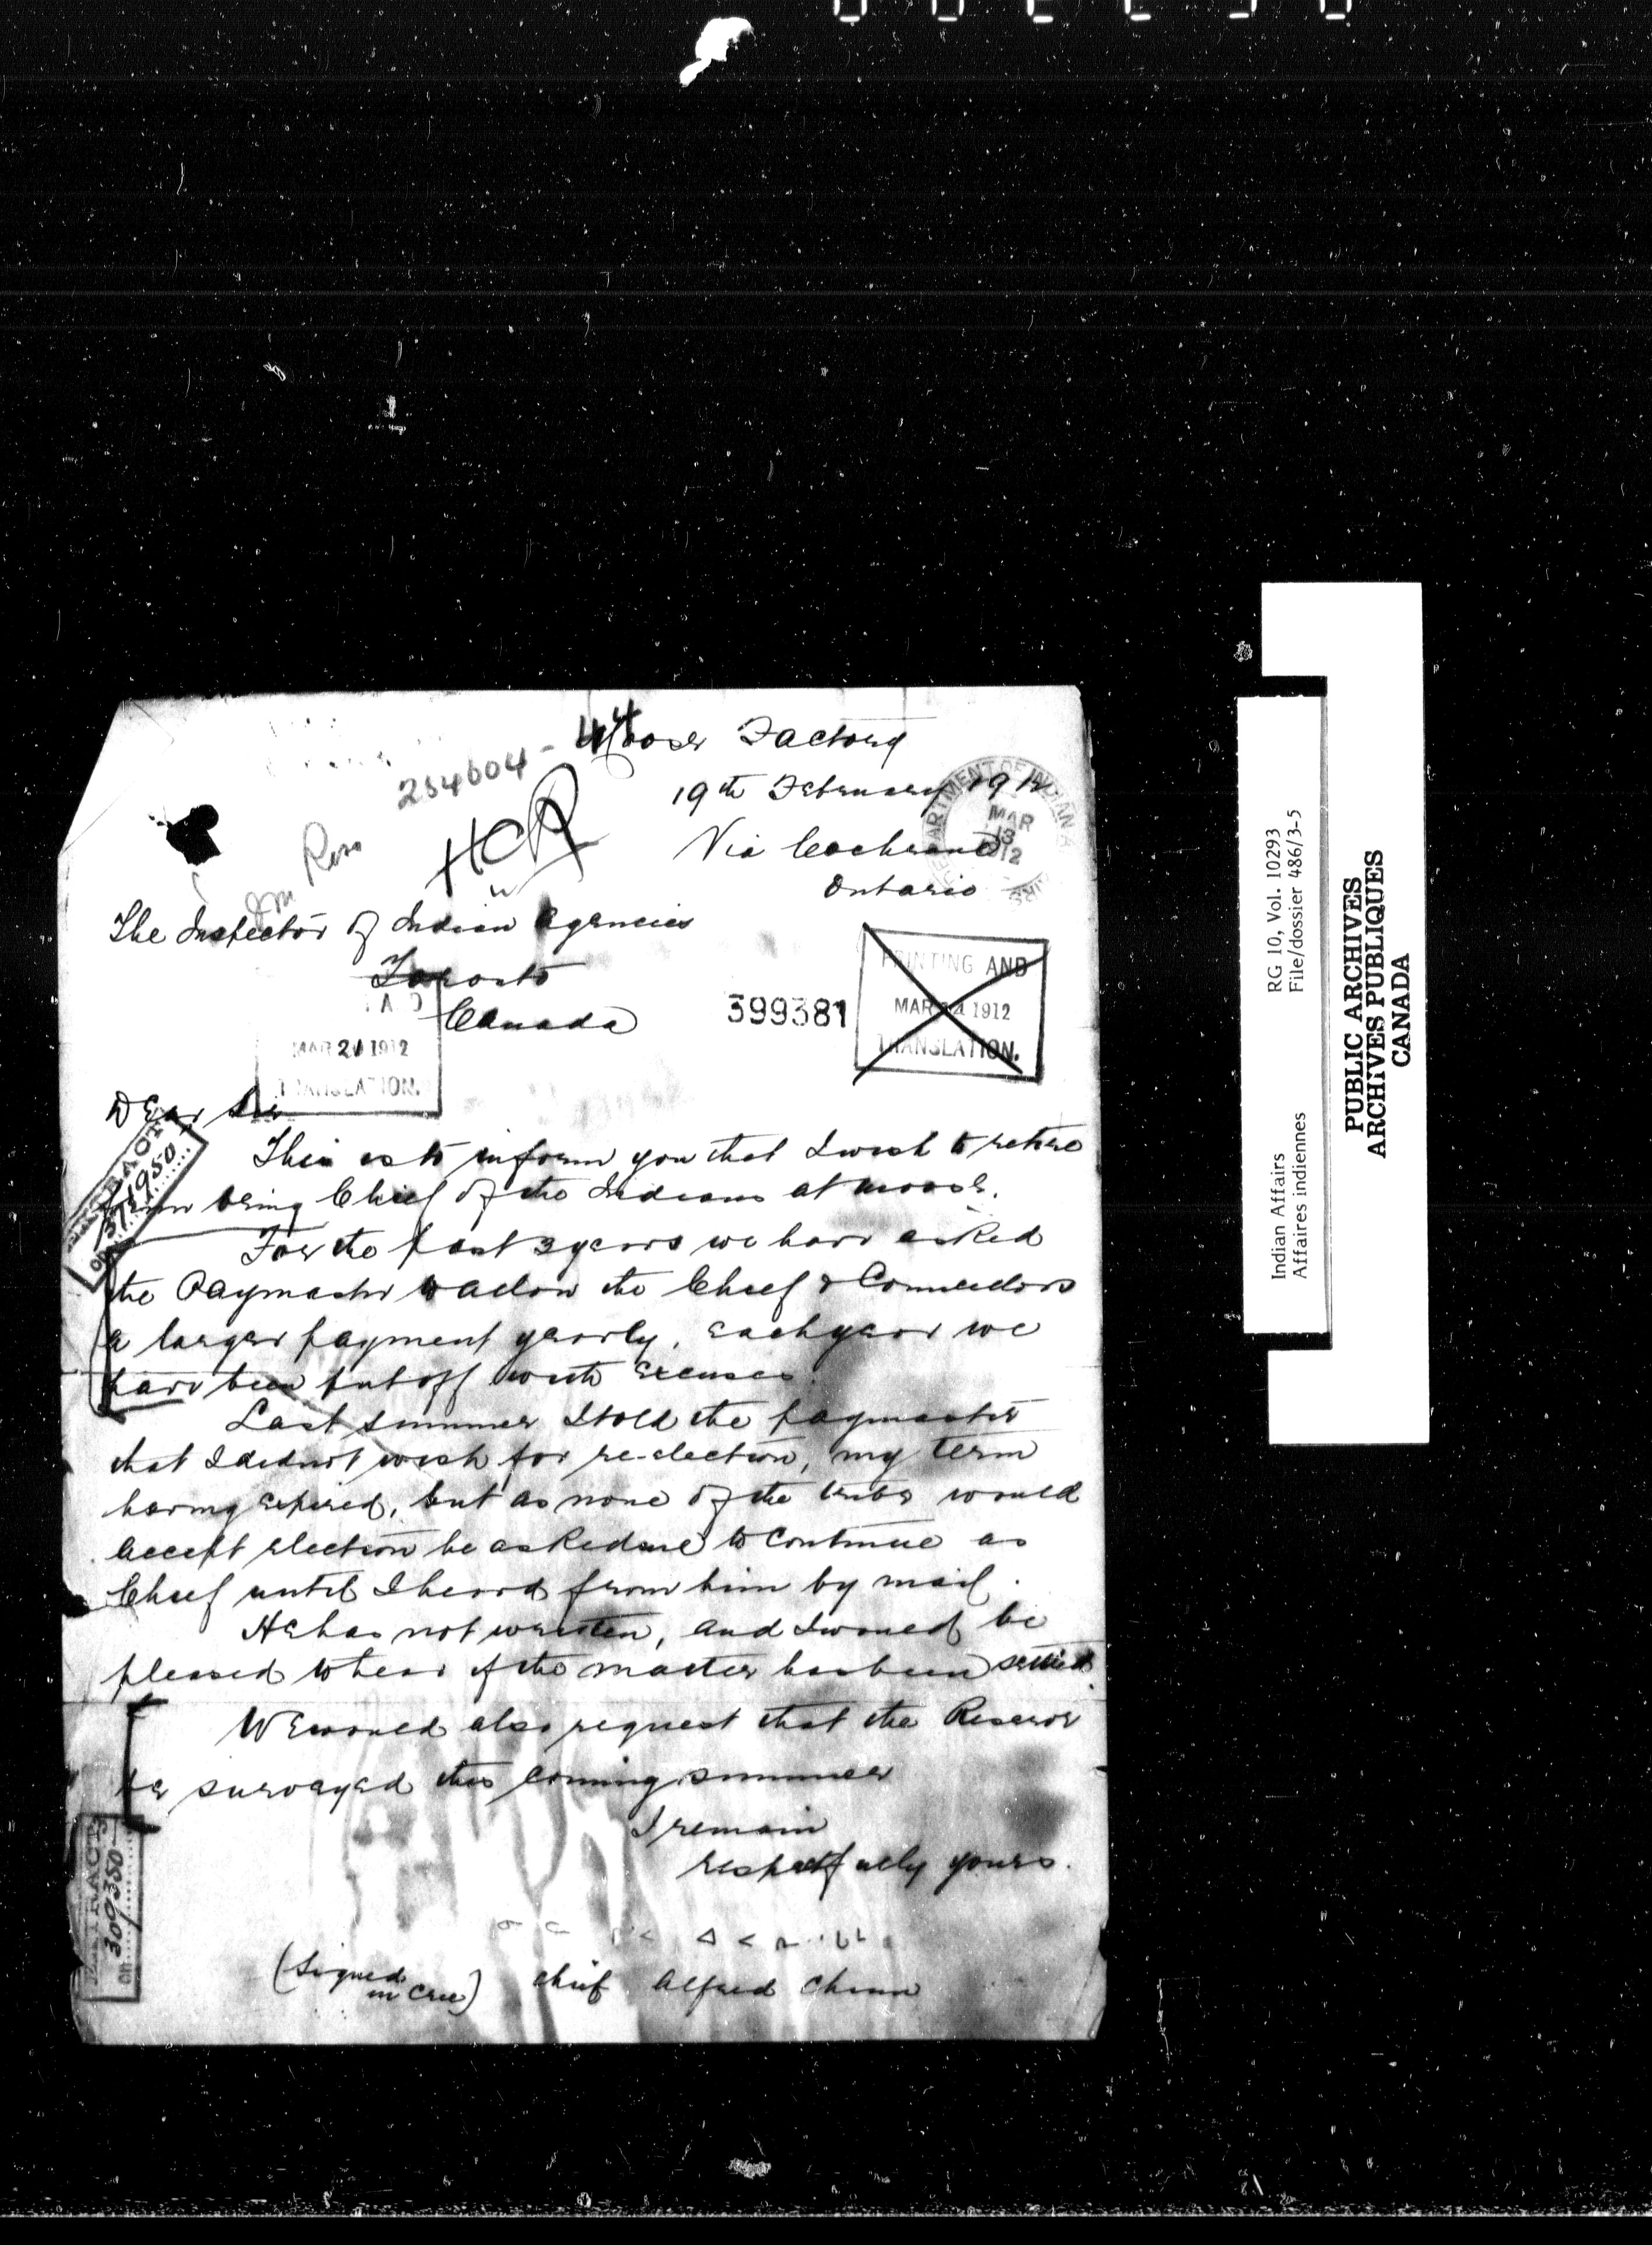 44
Moose Factory
254604-
19th February 1912
DEPARTMENT OF INDIAN
MAR
13
1912
Via Cochrane
Ontario
HCR
The Inspector of Indian Agencies
Toronto
Canada
399381
PRINTING AND
MAR 14 1912
TRANSLATION.
MAR 21 1912
TRANSLATION.
Dear Sir
This is to inform you that I wish to retire
from being Chief of the Indians at Moose.
For the past 3 years we have asked
the Paymaster to allow the Chief & Councillors
a larger payment yearly, each year we
have been put off with excuses.
Last summer I told the paymaster
that I did not wish for re-election, my term
having expired, but as none of the tribe would
accept election he asked me to continue as
Chief until I heard from him by mail.
He has not written, and I would be
pleased to hear if the matter has been settled.
We would also request that the Reserve
be surveyed this coming summer
I remain
respectfully yours.
(Signed in Cree) chief Alfred Chum
EXTRACT
ON 300350
RG 10, Vol. 10293
File/dossier 486/3-5
Indian Affairs
Affaires indiennes
PUBLIC ARCHIVES
ARCHIVES PUBLIQUES
CANADA